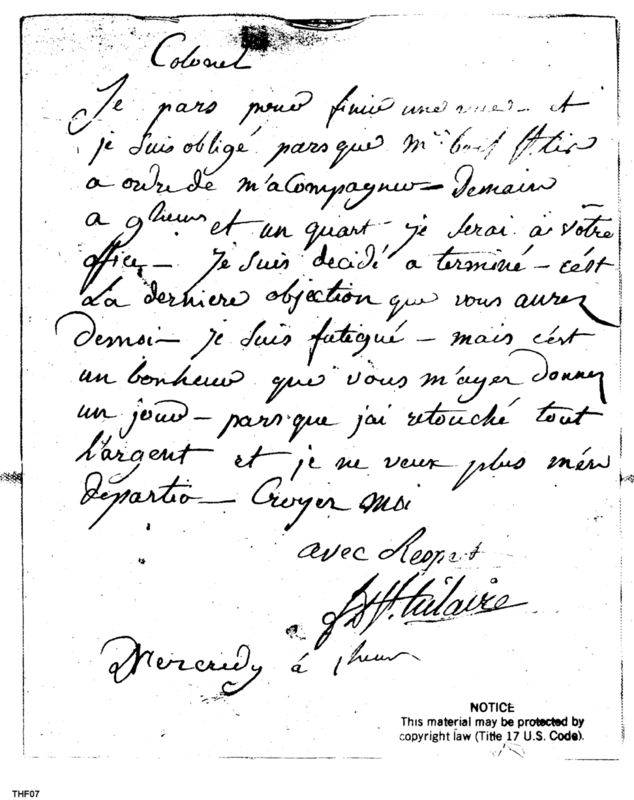 Colonel
Je pars pour finir une et
je suis obligé parsque
a ordre de m'acompagner — Demain
a 9 heures et un quart je serai à vôtre
office — Je suis décidé a terminé — c'ést
La derniere objection que vous aurez
demoi — je suis fatigué — mais c'est
un bonheur que vous m'ayer donner
un jour — parsque jai retouché tout
l'argent et je ne veux plus m'én
départir — Croyer Moi
avec Respet
St. hilaire
Mercredy à 1 heur
NOTICE
This material may be protected by
copyright law (Title 17 U.S. Code).
THF07